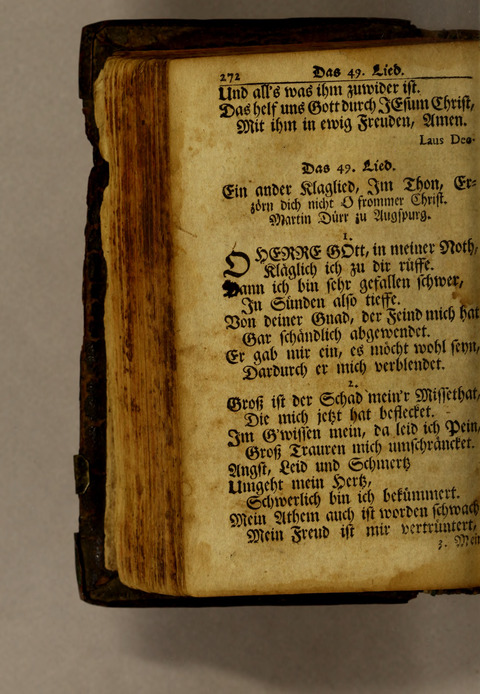 272 Das 49. Lied.
Und all's was ihm zuwider ist.
Das helf uns Gott durch JEsum Christ,
Mit ihm in ewig Freuden, Amen.
Laus Deo.
Das 49. Lied.
Ein ander Klaglied, Im Thon, Er-
zörn dich nicht O frommer Christ.
Martin Dürr zu Augspurg.
1.
O HERRE GOtt, in meiner Noth,
Kläglich ich zu dir rüffe.
Dann ich bin sehr gefallen schwer,
In Sünden also tieffe.
Von deiner Gnad, der Feind mich hat
Gar schändlich abgewendet.
Er gab mir ein, es möcht wohl seyn,
Dardurch er mich verblendet.
2.
Groß ist der Schad mein'r Missethat,
Die mich jetzt hat beflecket.
Im G'wissen mein, da leid ich Pein,
Groß Trauren mich umschräncket.
Angst, Leid und Schmertz
Umgeht mein Hertz,
Schwerlich bin ich bekümmert.
Mein Athem auch ist worden schwach
Mein Freud ist mir vertrüntert,
3. Mein